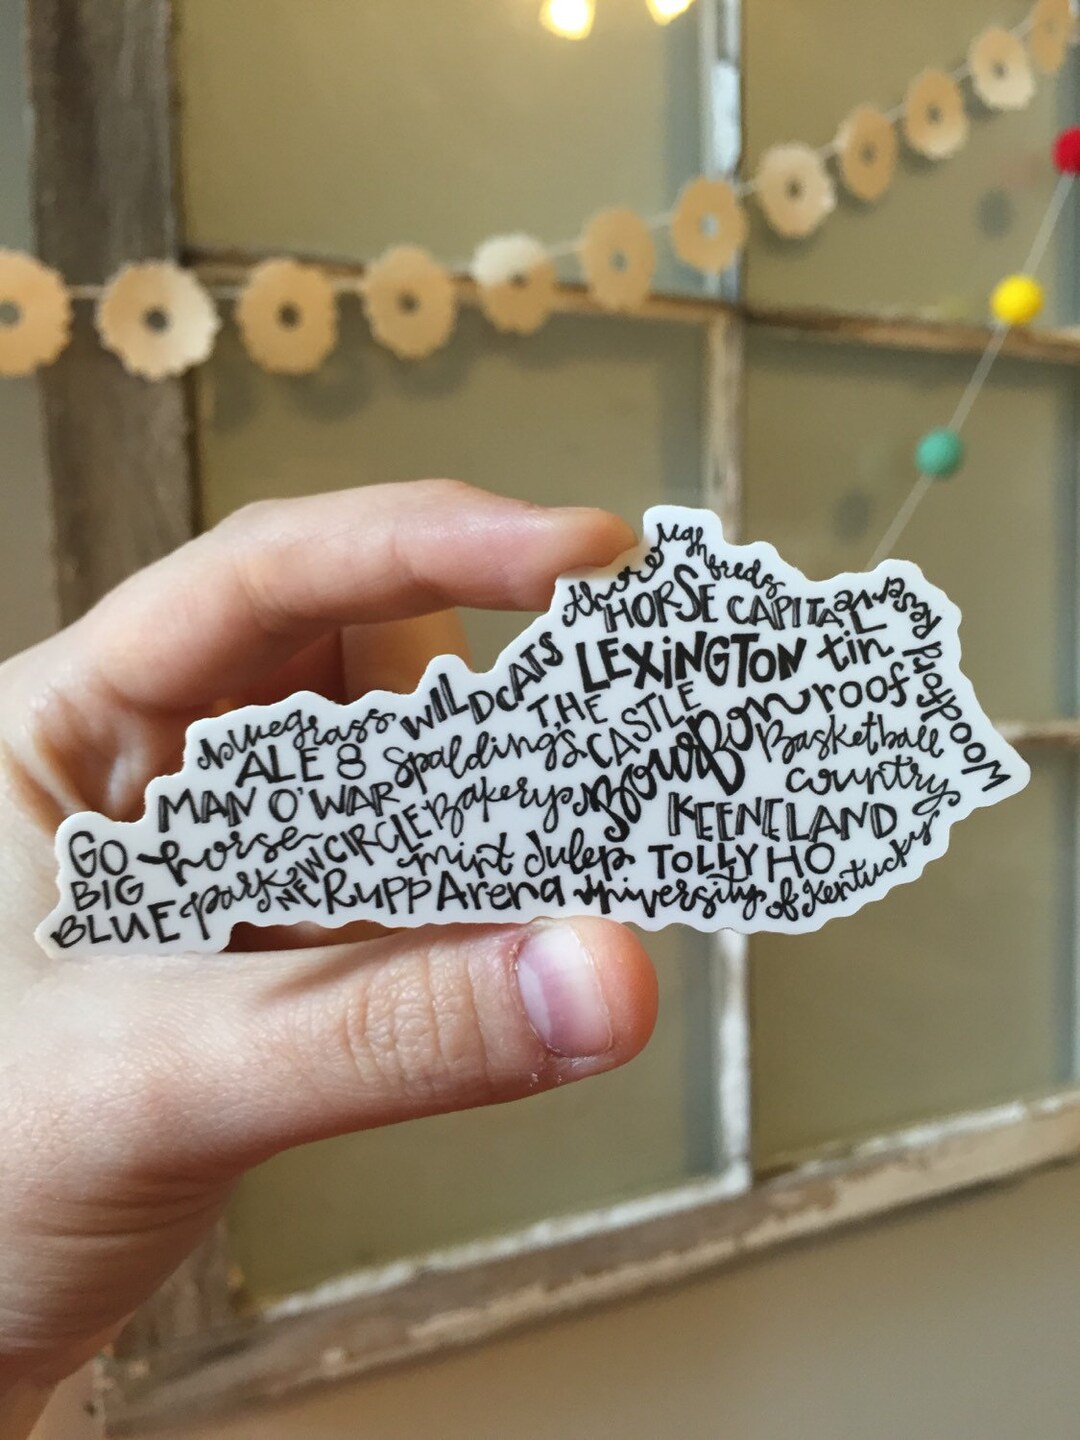 thoroughbreds
HORSE CAPITAL
Woodford Reserve
WILDCATS
LEXiNGTON
tin
roof
bluegrass
THE
CASTLE
ALE 8
Spalding's
BourBon
Basketball
country
MAN O'WAR
Bakery
KEENELAND
GO
BIG
BLUE
horse
park
NEW CIRCLE
mint Julep
TOLLY HO
Rupp Arena
University of Kentucky